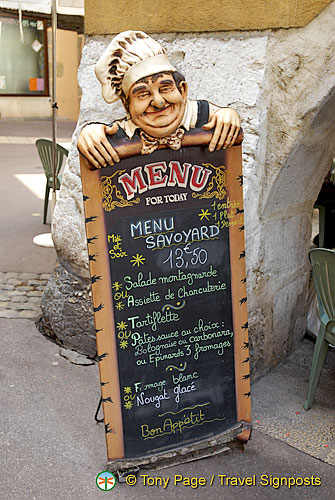 MENU
FOR TODAY
1 entrée
1 Plat
MENU
SAVOYARD
Midi
et Soir
13,50 €
* Salade montagnarde
ou
* Assiette de Charcuterie
* Tartiflette
ou
* Pâtes sauce au choix :
Bolognaise ou carbonara,
ou Epinards 3 fromages
* Fromage blanc
ou
* Nougat glacé
Bon Appétit
© Tony Page / Travel Signposts